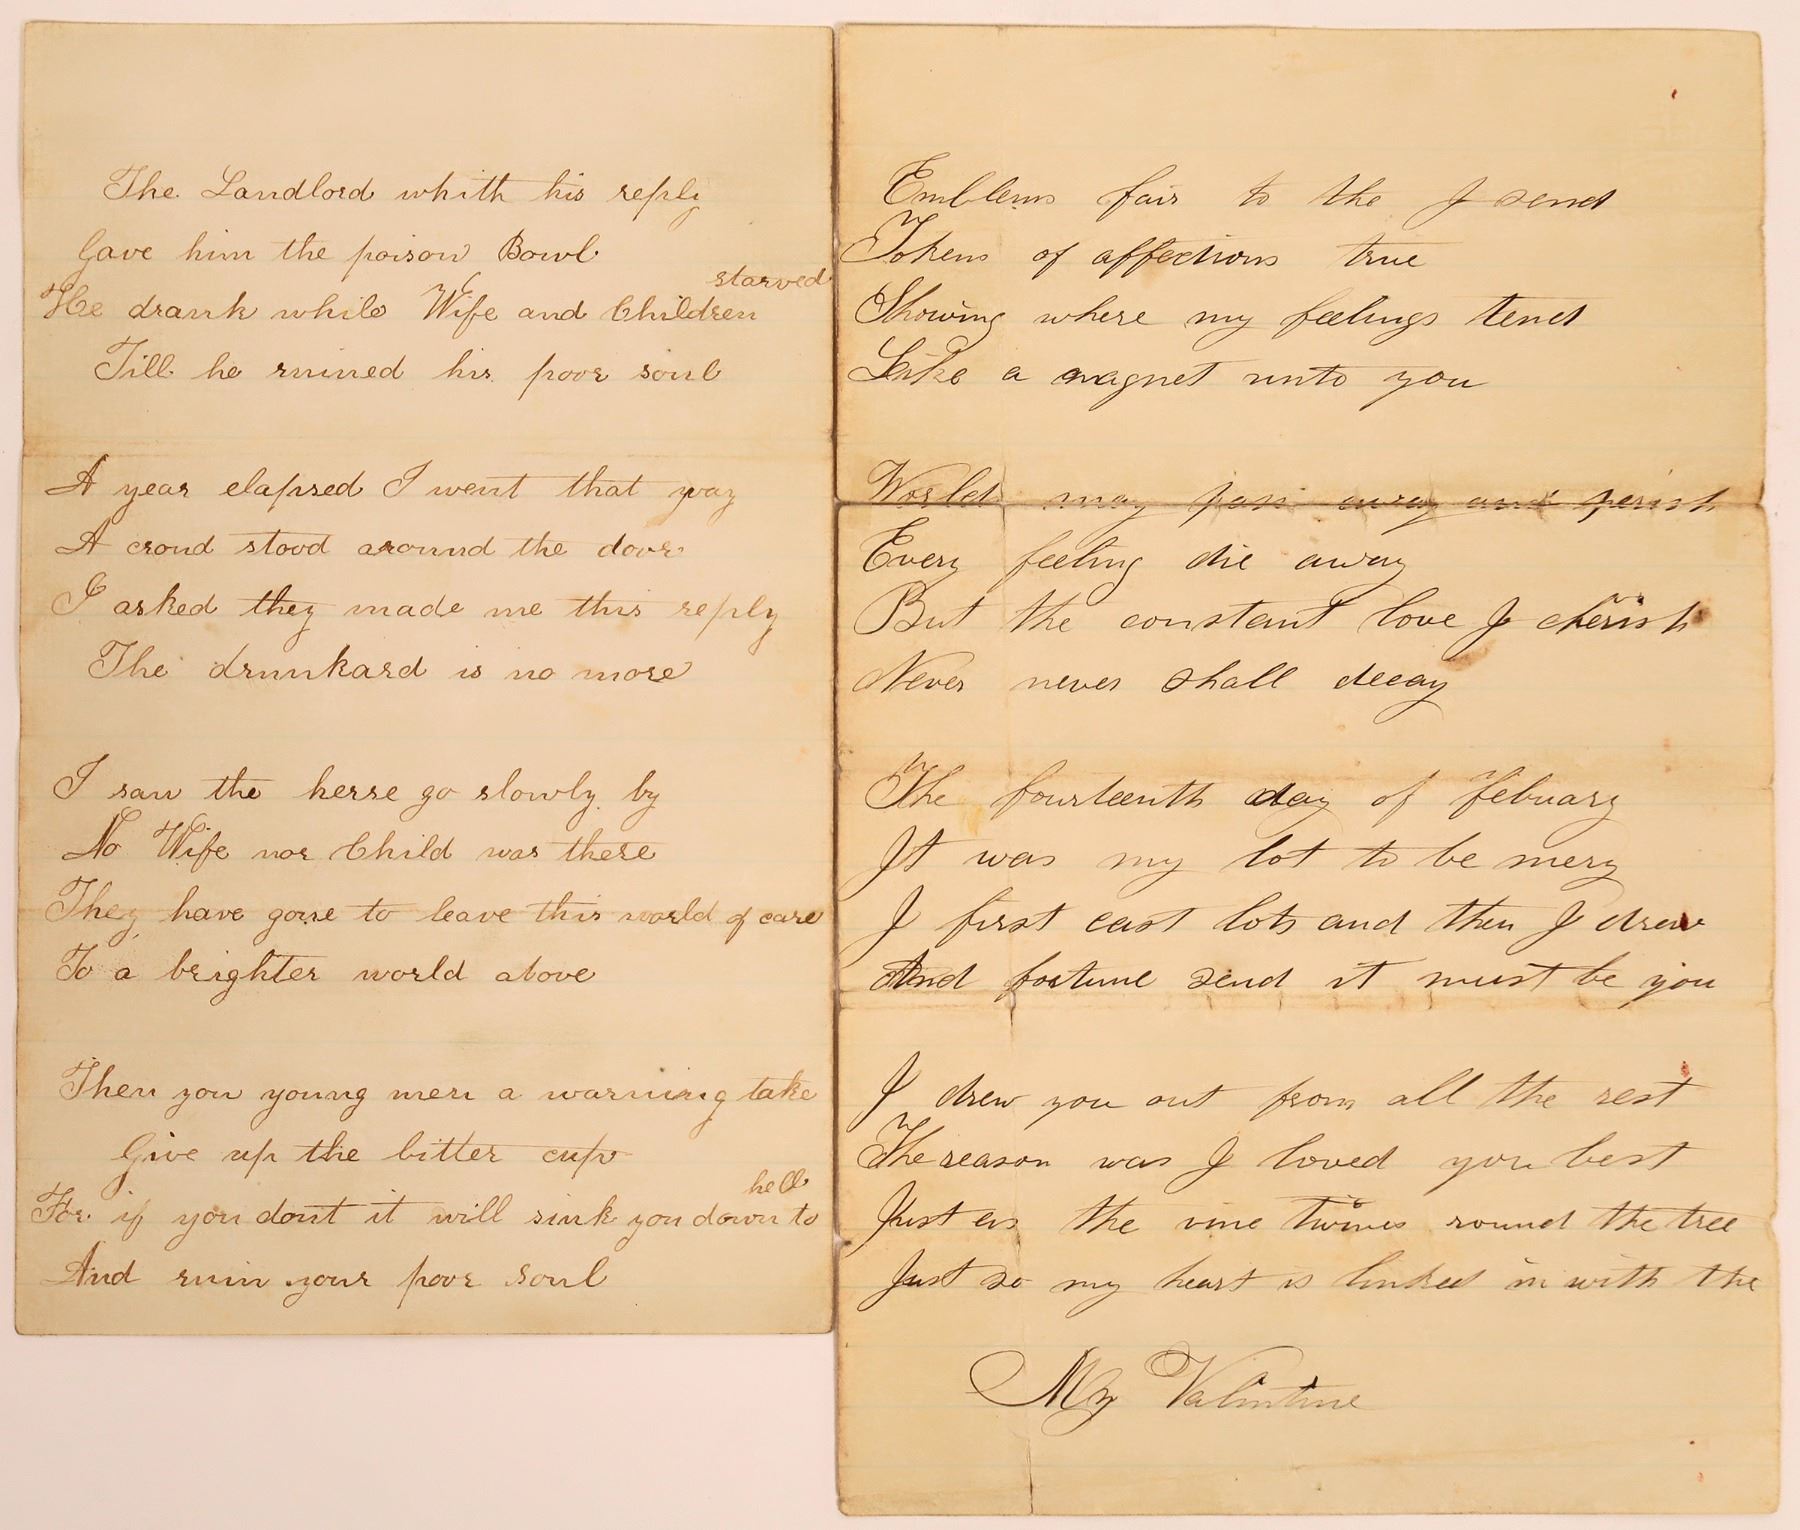 The Landlord whith his reply
Gave him the poison Bowl
He drank while Wife and Children starved
Till he ruined his poor soul
A year elapsed I went that way
A croud stood around the door
I asked they made me this reply
The drunkard is no more
I saw the herse go slowly by
No Wife nor Child was there
They have gone to leave this world of care
To a brighter world above
Then you young men a warning take
Give up the bitter cup
For if you dont it will sink you down to hell
And ruin your poor soul
Emblems fair to the I send
Tokens of affections true
Showing where my feelings tend
Like a magnet unto you
Worlds may pass away and perish
Every feeling die away
But the constant love I cherish
Never never shall decay
The fourteenth day of Febuary
It was my lot to be mery
I first cast lots and then I drew
And fortune send it must be you
I drew you out from all the rest
The reason was I loved you best
Just as the vine twines round the tree
Just so my heart is linked in with the
My Valintine